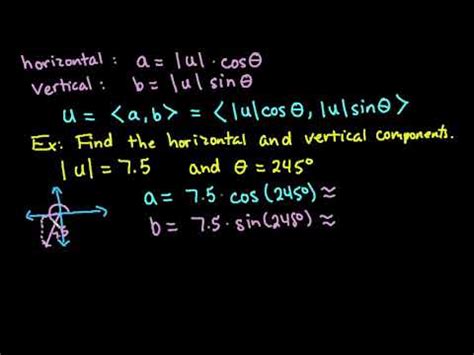 horizontal : a = |u| · cosθ
vertical : b = |u| sinθ
u = <a,b> = <|u|cosθ, |u|sinθ>
Ex: Find the horizontal and vertical components.
|u| = 7.5 and θ = 245°
a = 7.5 · cos(245°) ≈
b = 7.5 · sin(245°) ≈
7.5